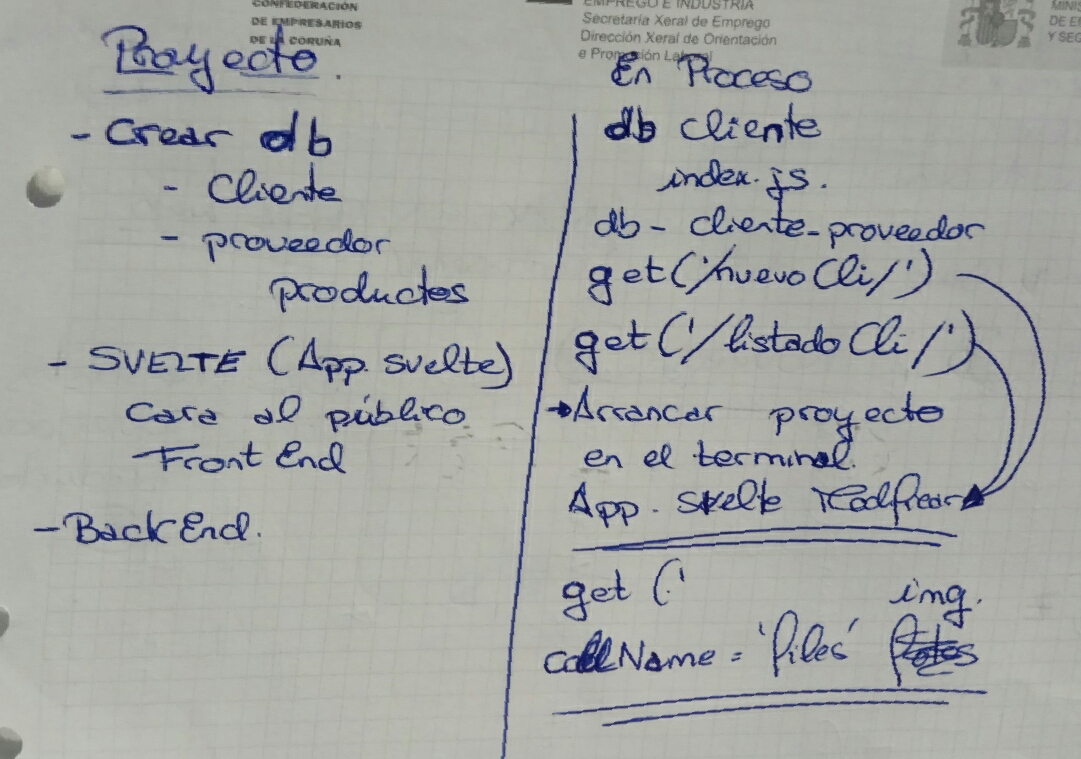 CONFEDERACIÓN
DE EMPRESARIOS
DE LA CORUÑA
EMPREGO E INDUSTRIA
Secretaría Xeral de Emprego
Dirección Xeral de Orientación
e Promoción Laboral
MINIS
DE E
Y SEG
Proyecto.
- Crear db
- Cliente
- proveedor
productos
- SVELTE (App. svelte)
Cara al público
Front End
- Back End.
En Proceso
db cliente
index.js.
db - cliente-proveedor
get('/nuevoCli/')
get('/listadoCli/')
→ Arrancar proyecto
en el terminal.
App. svelte
get ('
img.
collName = 'files' fotos